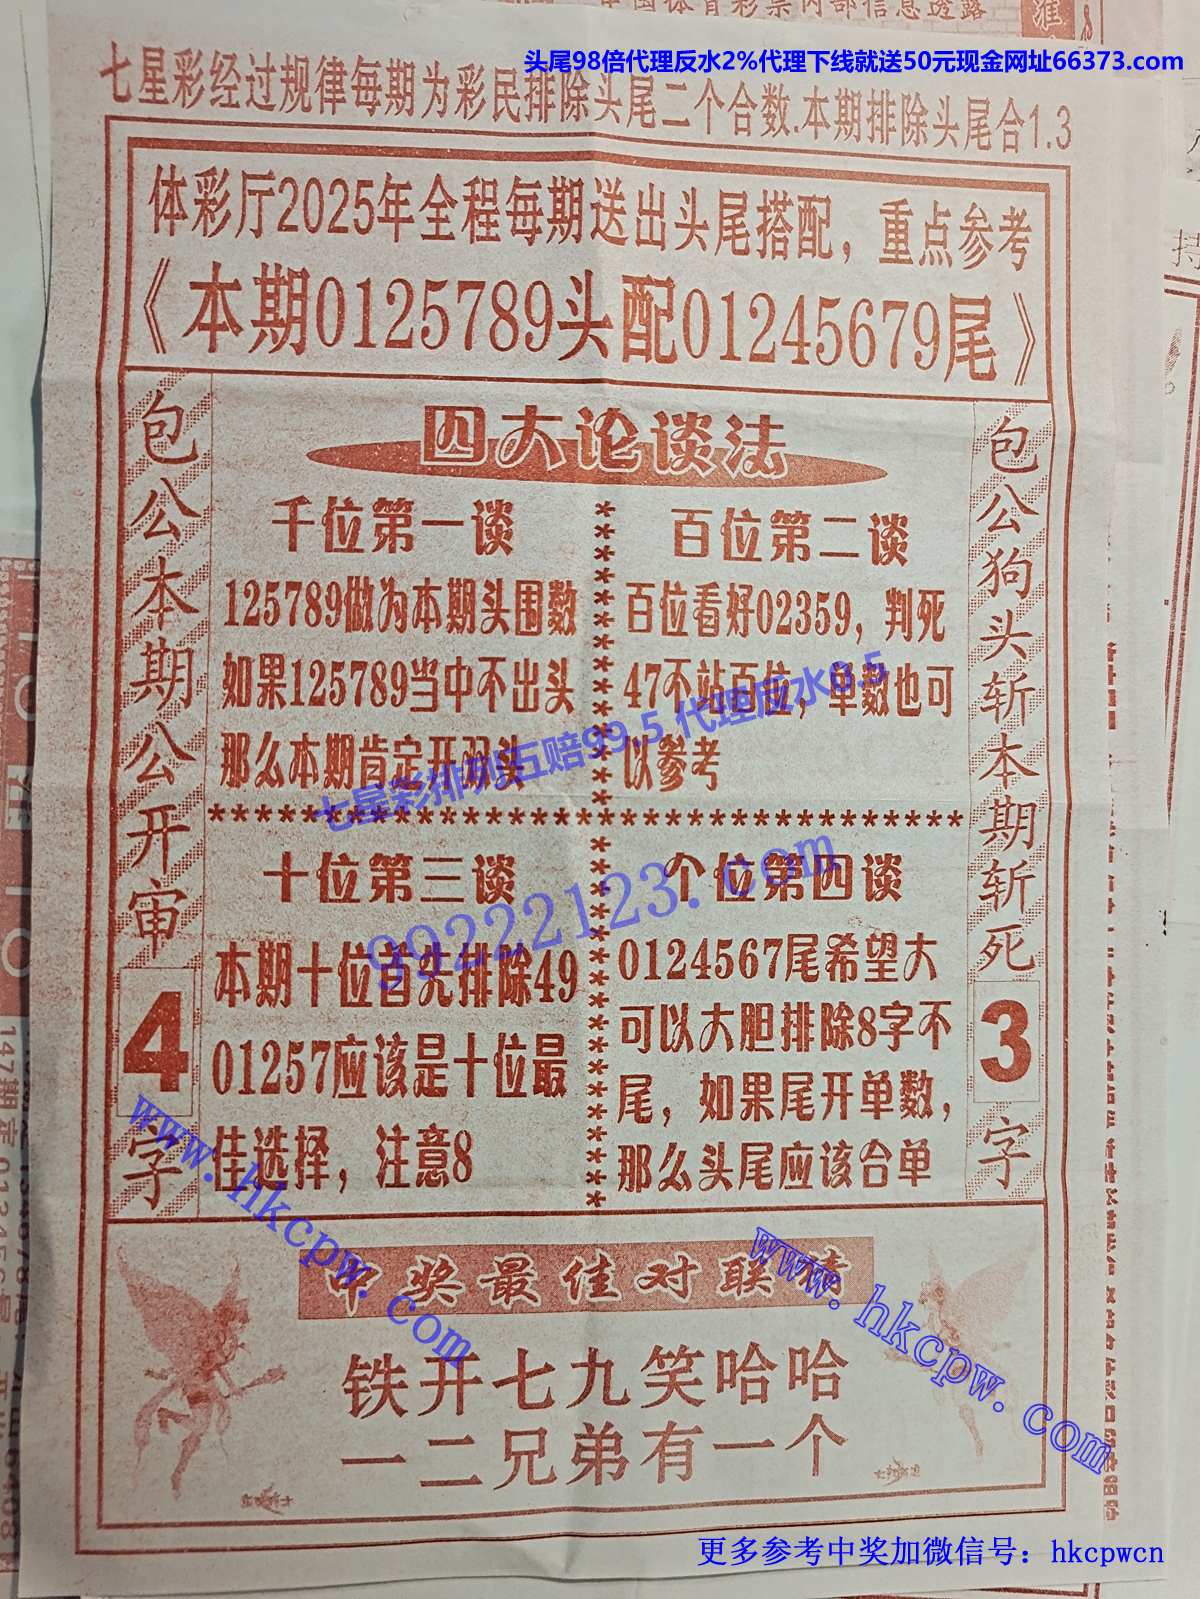 中国体育彩票内部信息透露
头尾98倍代理反水2%代理下线就送50元现金网址66373.com
七星彩经过规律每期为彩民排除头尾二个合数.本期排除头尾合1.3
体彩厅2025年全程每期送出头尾搭配，重点参考
《本期0125789头配01245679尾》
包公本期公开审4字
四大论谈法
千位第一谈
125789做为本期头围数
如果125789当中不出头
那么本期肯定开双头
百位第二谈
百位看好02359，判死
47不站百位，单数也可
以参考
七星彩排列五赔99.5 代理反水9.5
十位第三谈
本期十位首先排除49
01257应该是十位最
佳选择，注意8
个位第四谈
0124567尾希望大
可以大胆排除8字不
尾，如果尾开单数，
那么头尾应该合单
99222123.com
包公狗头斩本期斩死3字
www.hkcpw.com
www.hkcpw.com
中奖最佳对联猜
铁开七九笑哈哈
一二兄弟有一个
更多参考中奖加微信号：hkcpwcn